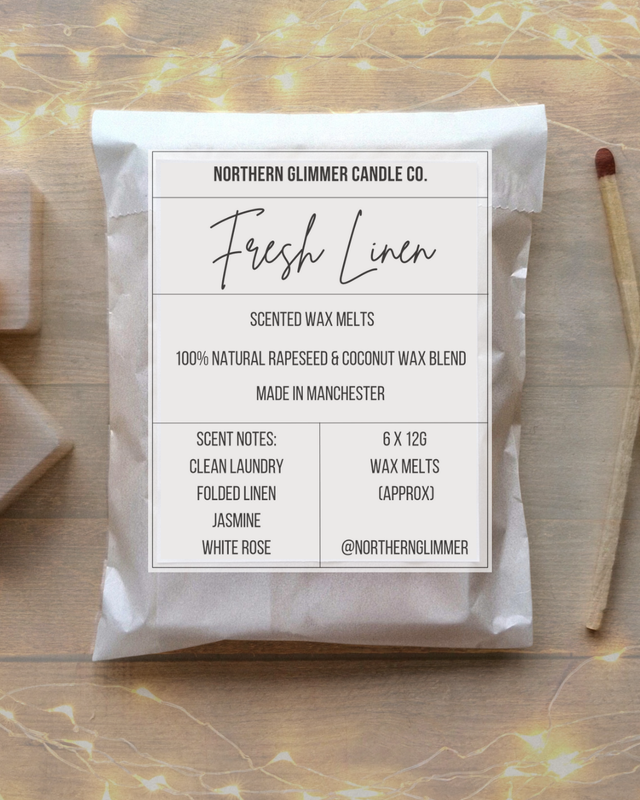 NORTHERN GLIMMER CANDLE CO.
Fresh Linen
SCENTED WAX MELTS
100% NATURAL RAPESEED & COCONUT WAX BLEND
MADE IN MANCHESTER
SCENT NOTES:
CLEAN LAUNDRY
FOLDED LINEN
JASMINE
WHITE ROSE
6 X 12G
WAX MELTS
(APPROX)
@NORTHERNGLIMMER